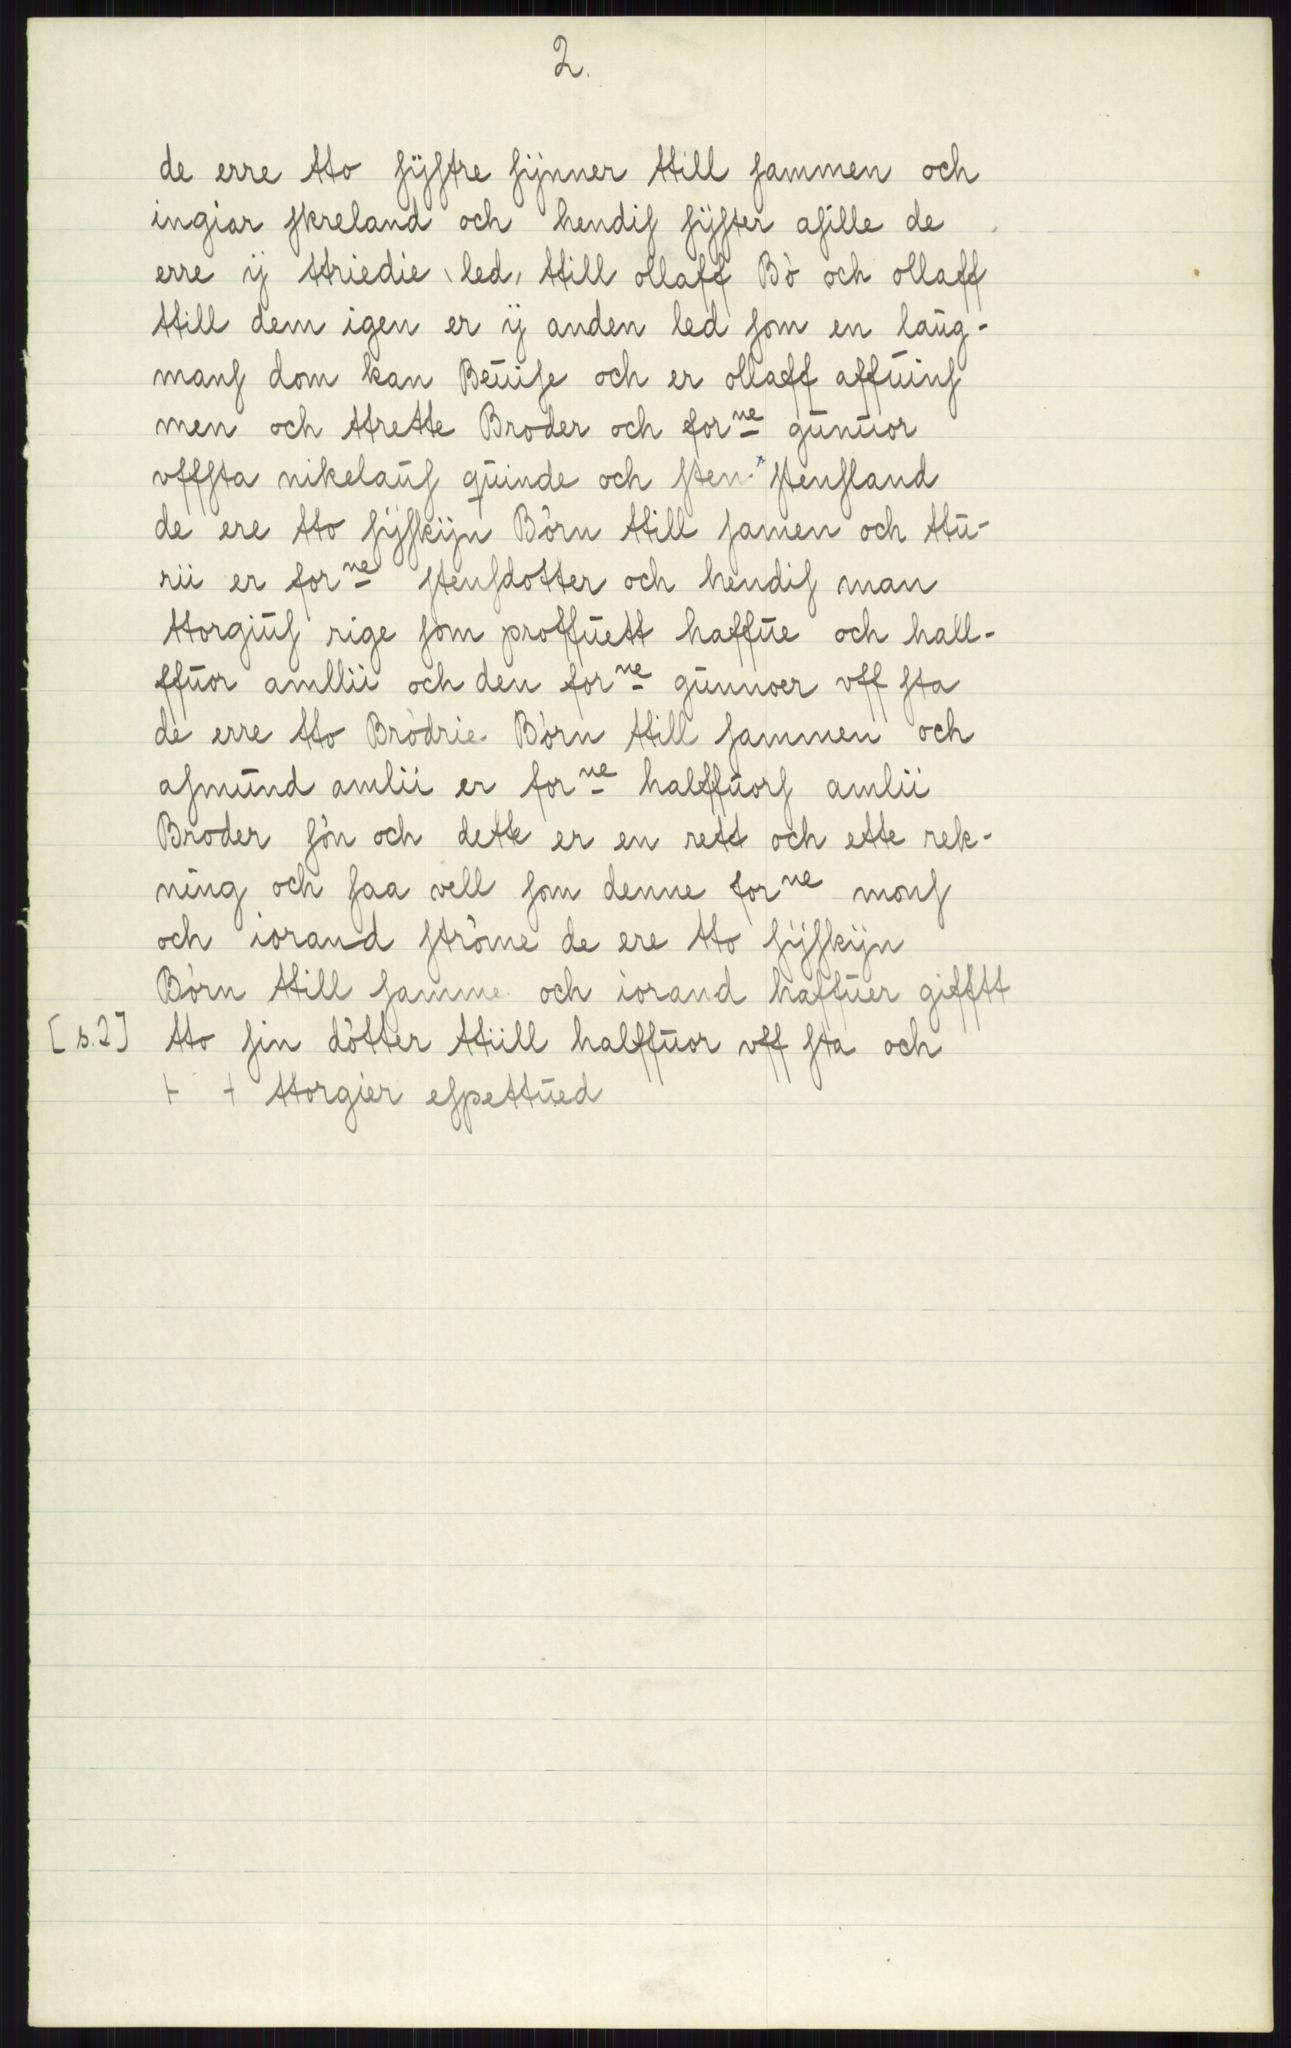 2.
de erre tto ſÿſtre ſÿnner ttill ſammen och
ingiar ſkreland och hendiſ ſÿſter aſille de
erre ij ttriedie led, ttill ollaff Bò och ollaff
ttill dem igen er ij anden led ſom en laŭg-
manſ dom kan Beŭiſe och er ollaff affŭinſ
men och ttrette Broder och forne gŭnŭor
vffſta nikelaŭſ qŭinde och ſten ſtenſland
de ere tto ſÿſkÿn Börn ttill ſamen och ttŭ-
rii er forne ſtenſdotter och hendiſ man
ttorgiŭſ rige ſom proffŭett haffŭe och hall-
ffŭor amllii och den forne gŭnnoer vff ſta
de erre tto Bròdrie Börn ttill ſammen och
aſmŭnd amlii er forne halffŭorſ amlii
Broder ſòn och dette er en rett och ette rek-
ning och ſaa vell ſom denne forne monſ
och iorand ſtròme de ere tto ſÿſkÿn
Bòrn ttill ſamme och iorand haffŭer gifftt
[s.2] tto ſin dòtter ttiill halffŭor vff ſta och
+ + ttorgier eſpettŭed